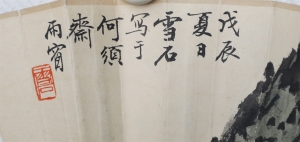 戊辰
夏日
雪石
写于
何须
斋
雨窗